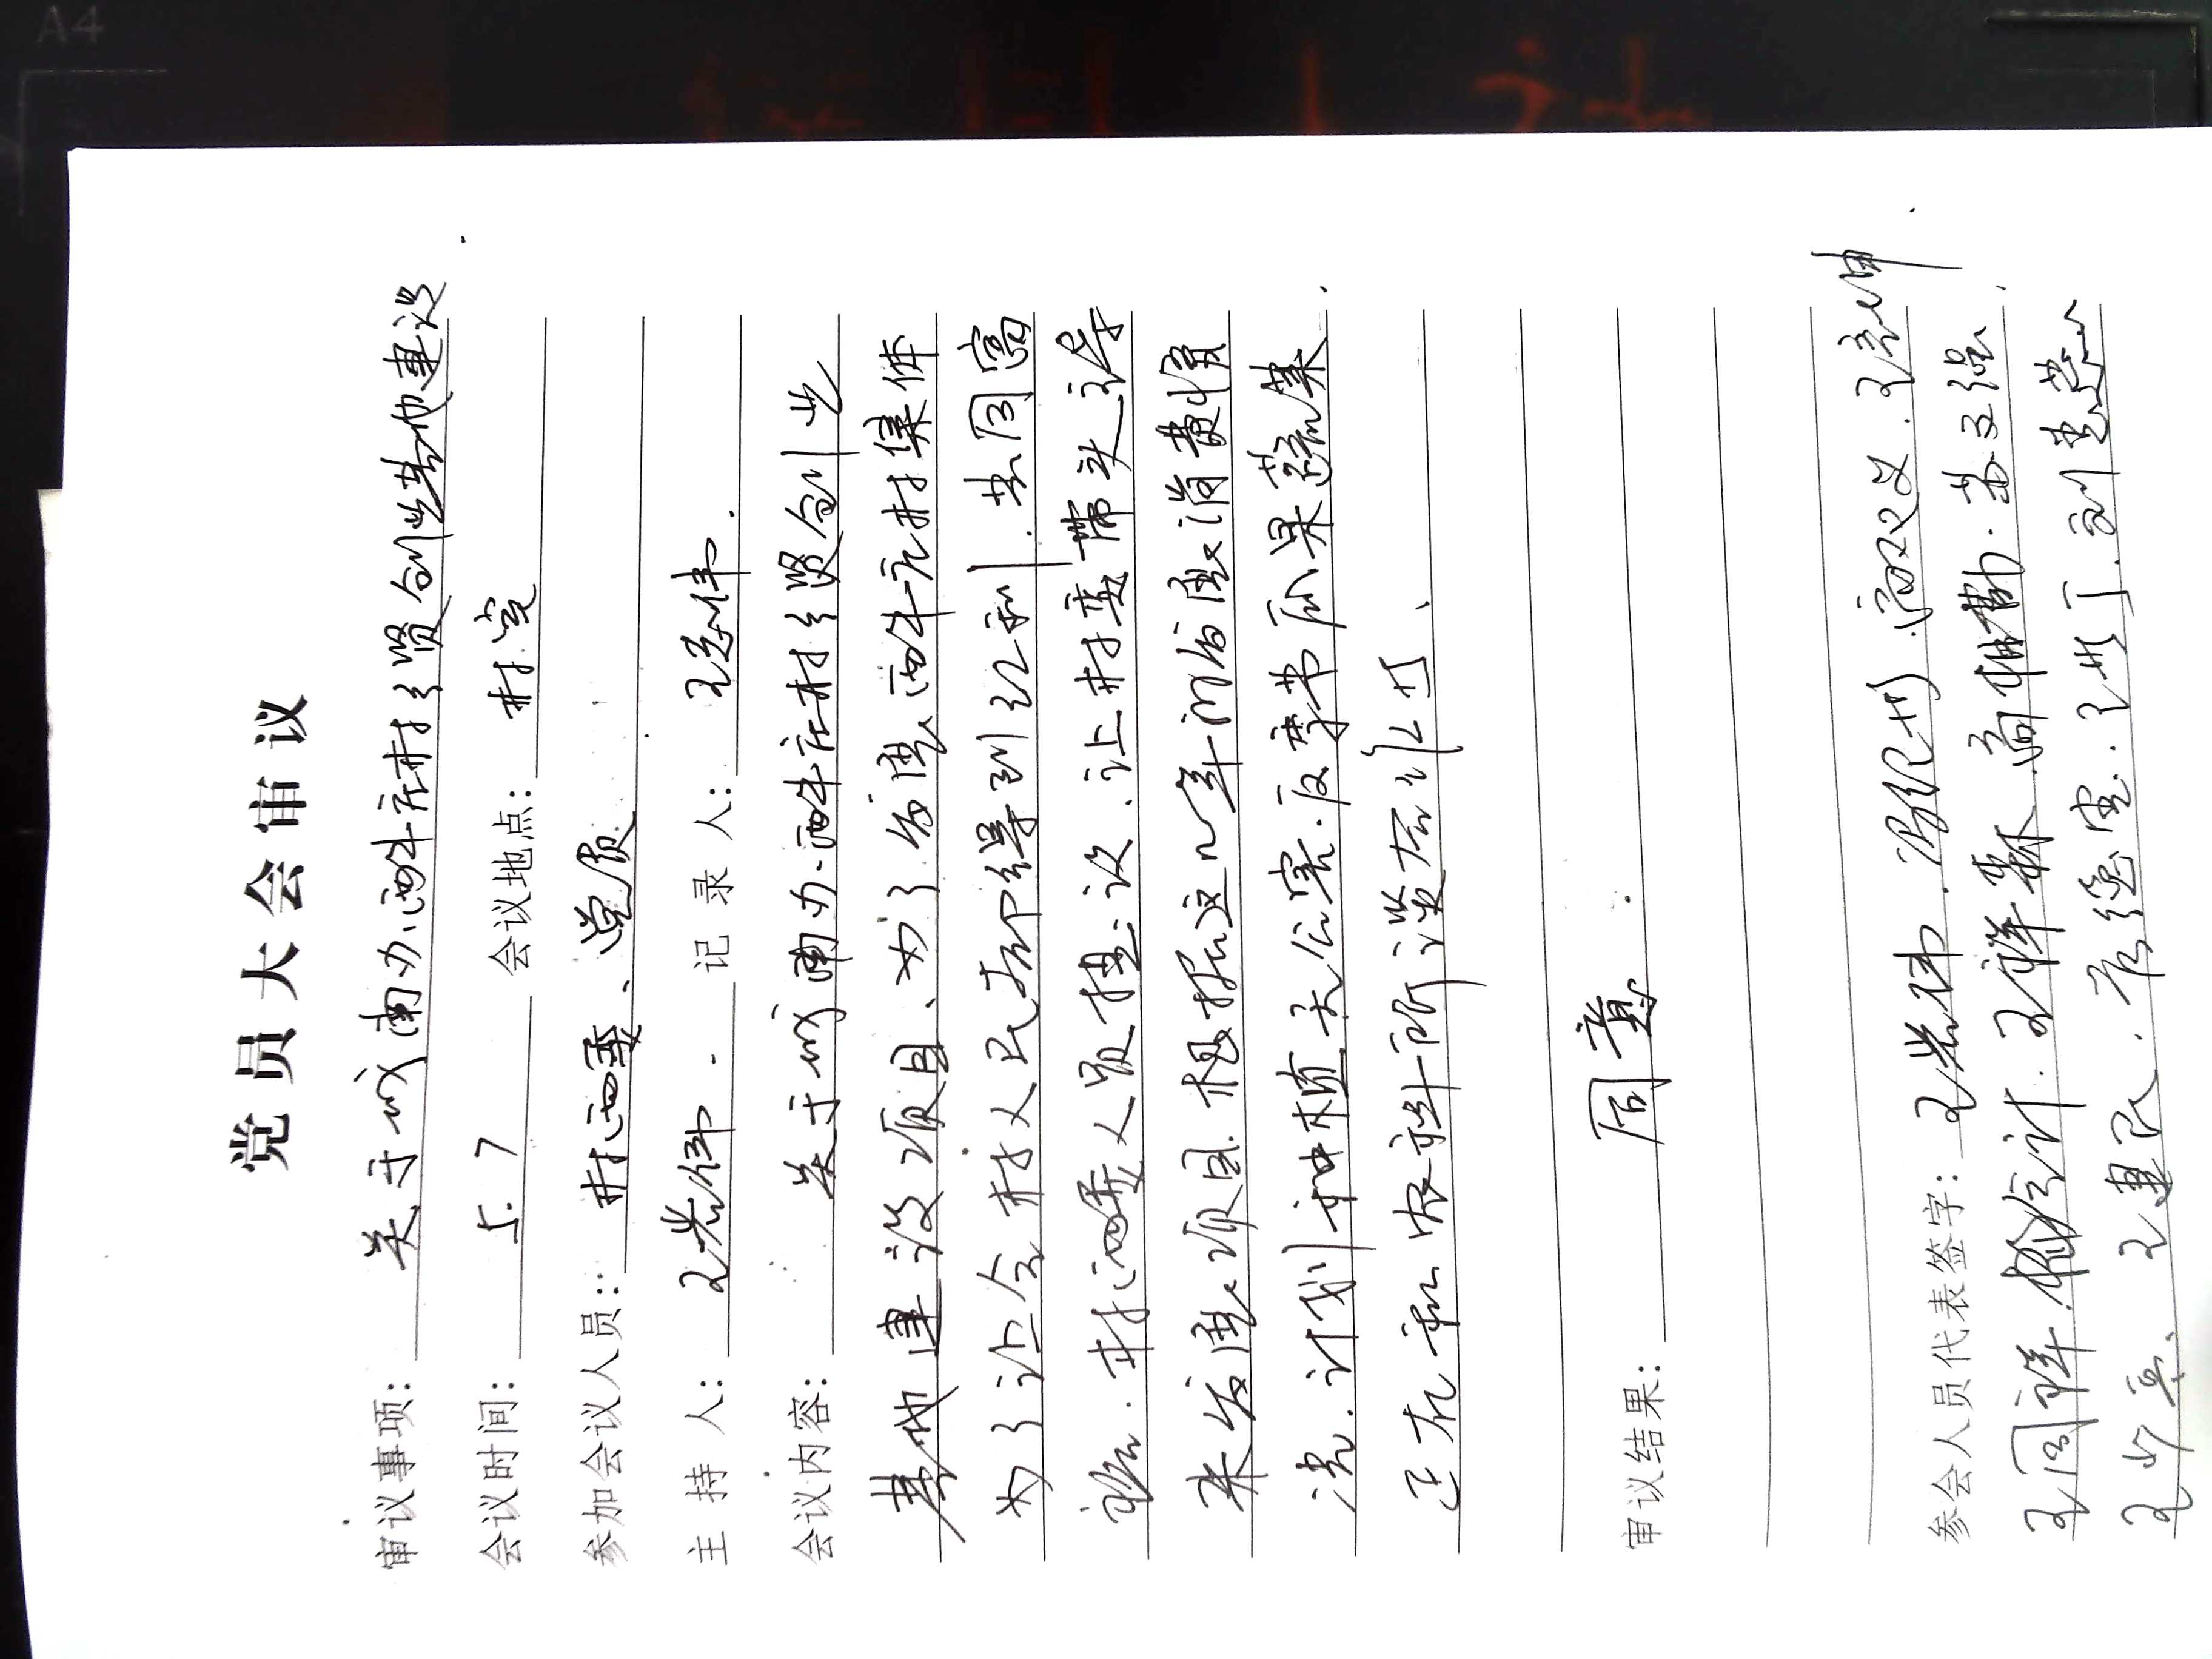 党员大会审议
审议事项: 关于城南办西牛庄村乡贤创业基地建设
会议时间: 5.7 会议地点: 村室
参加会议人员: 村两委、党员
主持人: 王岩伟. 记录人: 王志伟.
会议内容: 关于城南办西牛庄村乡贤创业
基地建设项目、为了发展西牛庄村集体
为了让全村人民都得到红利.共同富
裕.村两委人员提议.让村委带头主导
来发展项目.根据这几年的发展消费情
况.计划种植无公害.反季节瓜果蔬菜.
正在和农科所谈合作中、
审议结果: 同意.
参会人员代表签字: 王岩伟.冯纪州.高双义.王
王同祥. 会计.王祥森.高相勤.苏文强.
王少兵、王建民. 王 丁.刘
A4